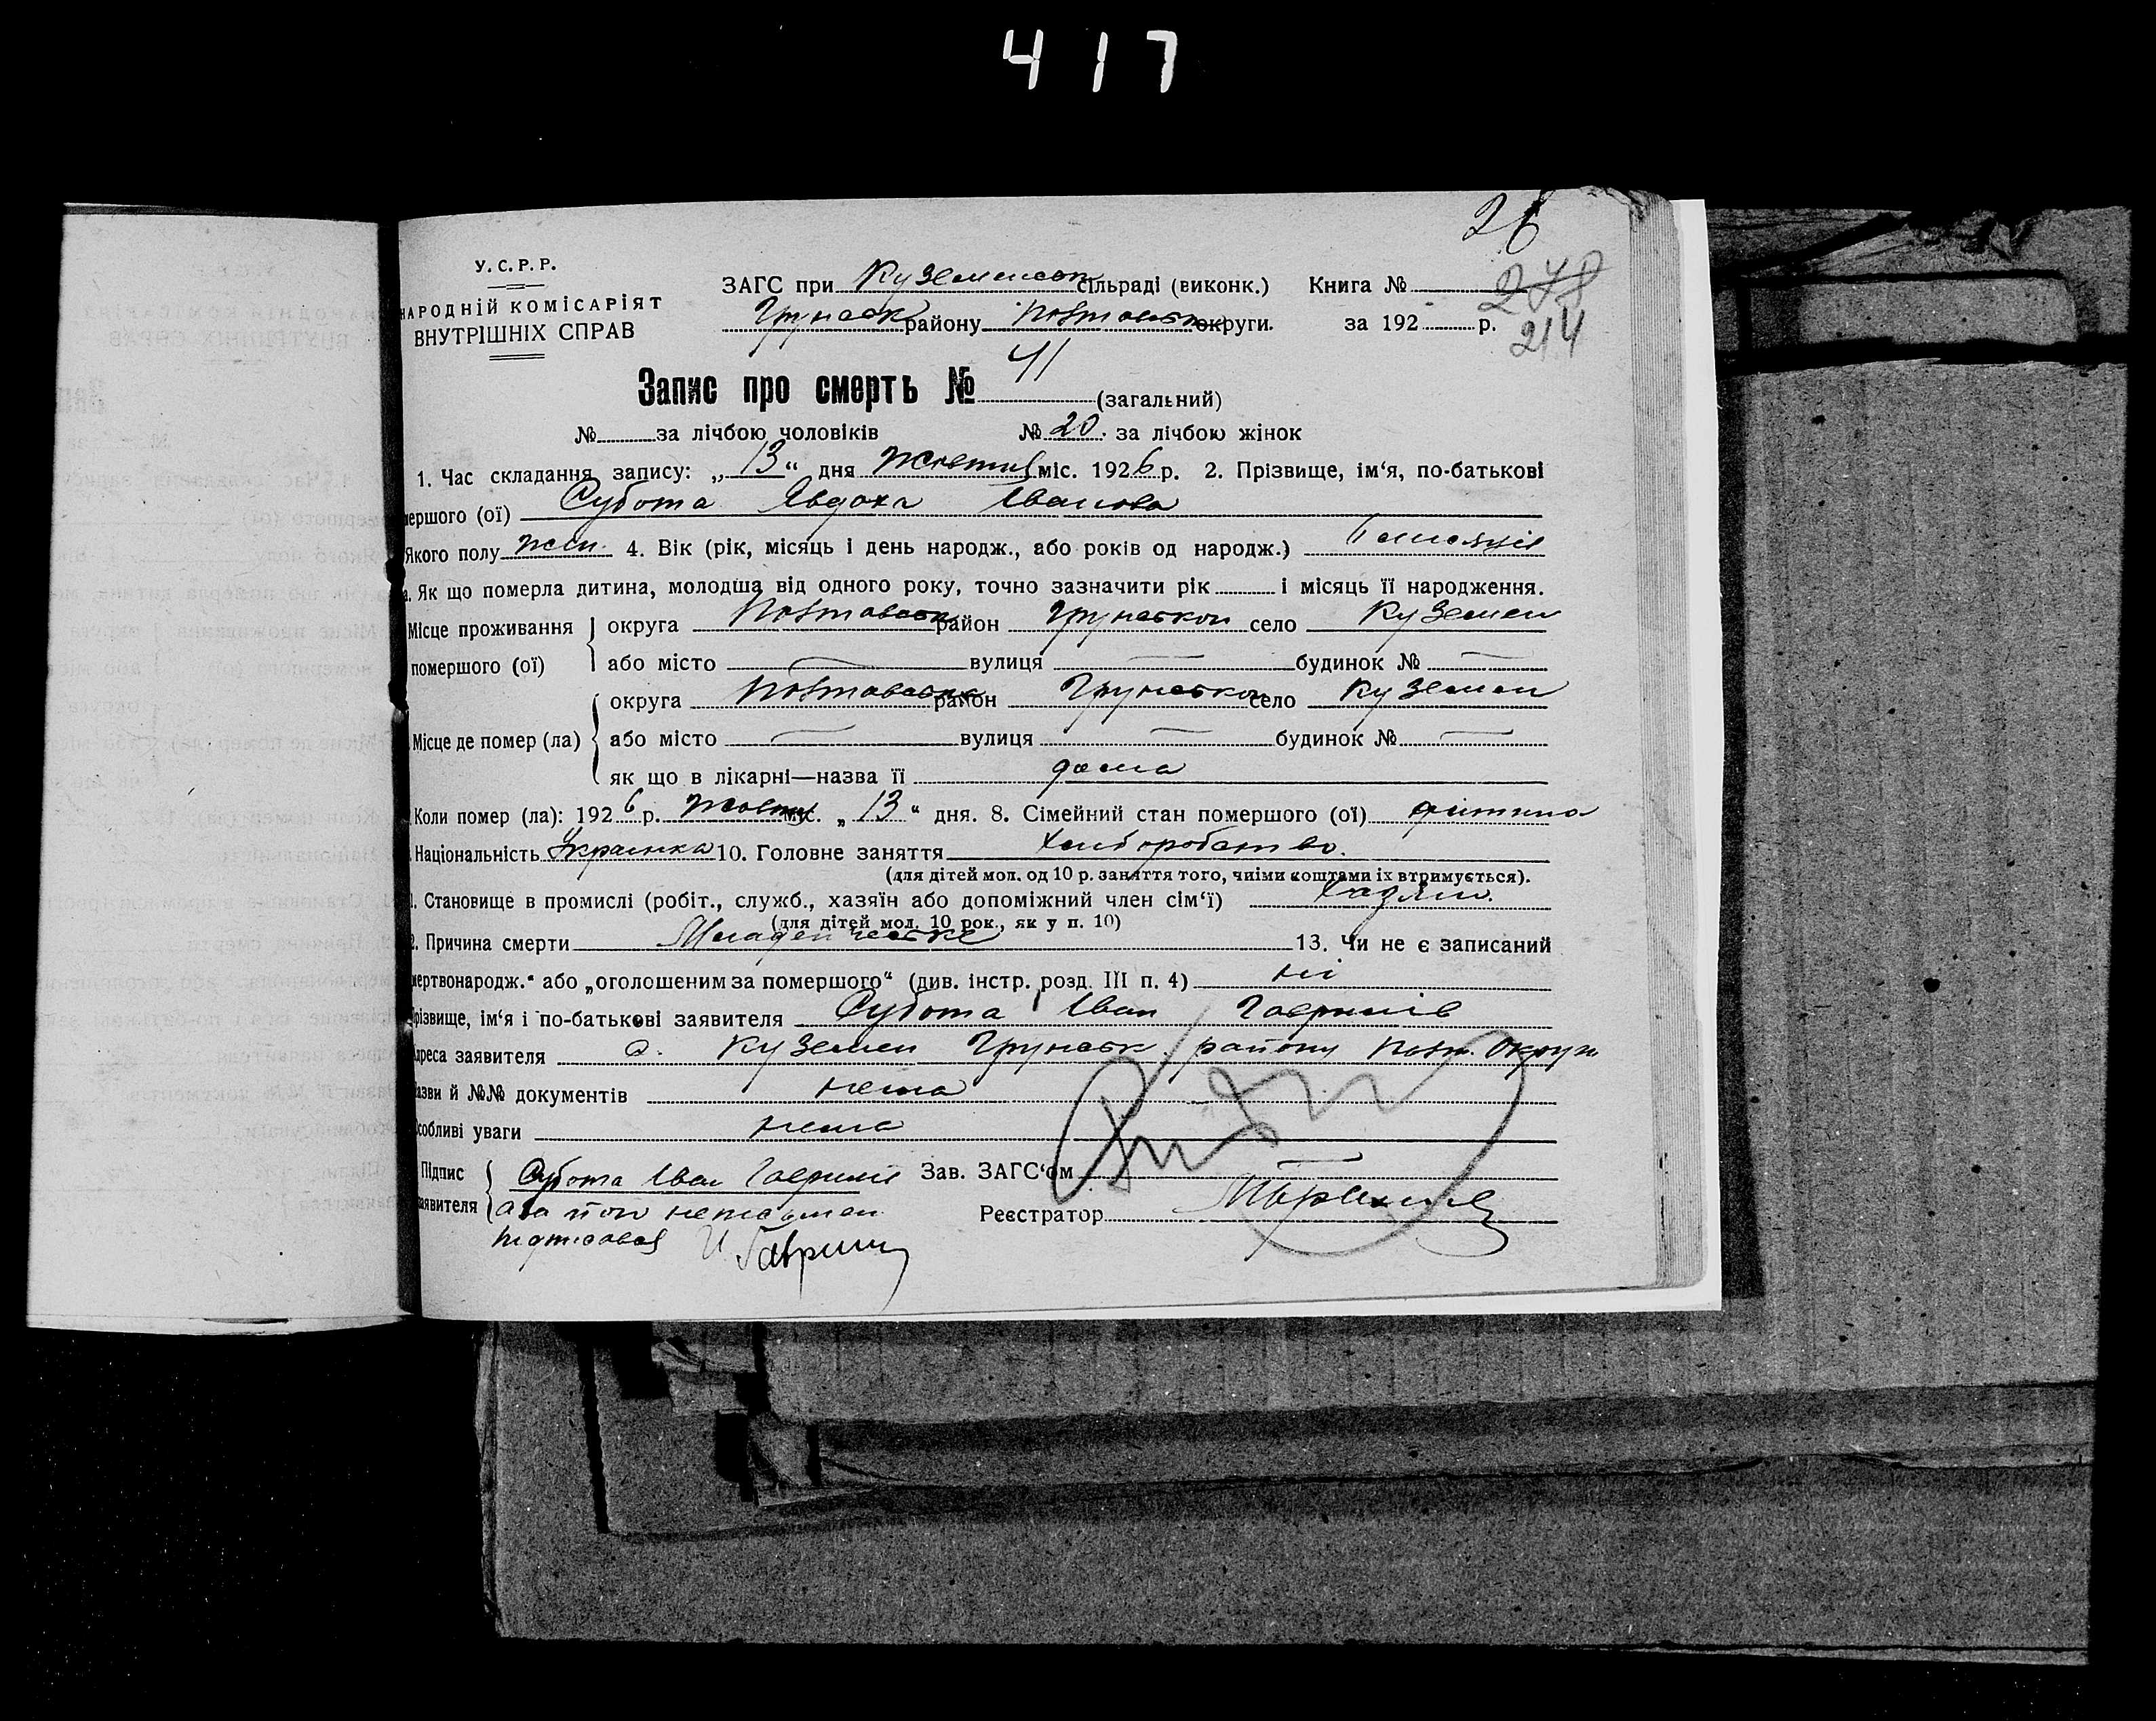 417
26
У.С.Р.Р.
НАРОДНІЙ КОМІСАРІЯТ
ВНУТРІШНІХ СПРАВ
ЗАГС при Куземенськ сільраді (виконк.) Книга № 278
Грунськ району Полтавськ округи. за 192 р.
214
Запис про смерть № 41 (загальний)
№ за лічбою чоловіків № 20. за лічбою жінок
1. Час складання запису: „13“ дня Жовтня міс. 1926 р. 2. Прізвище, ім‘я, по-батькові
мершого (ої) Субота Явдоха Іванова
Якого полу жін. 4. Вік (рік, місяць і день народж., або років од народж.) місяців
а. Як що померла дитина, молодша від одного року, точно зазначити рік і місяць її народження.
Місце проживання помершого (ої) округа Полтавська район Грунськой село Куземен
або місто — вулиця — будинок № —
Місце де помер (ла) округа Полтавська район Грунськой село Куземен
або місто — вулиця — будинок № —
як що в лікарні—назва її дома
Коли помер (ла): 1926 р. Жовтня міс. „13“ дня. 8. Сімейний стан помершого (ої) дитина
Національність Українка 10. Головне заняття Хліборобство.
(для дітей мол. од 10 р. заняття того, чиїми коштами їх втримується).
1. Становище в промислі (робіт., служб., хазяїн або допоміжний член сім‘ї) Хазяїн.
(для дітей мол. 10 рок., як у п. 10)
2. Причина смерти Младенческе 13. Чи не є записаний
мертвонародж.“ або „оголошеним за помершого“ (див. інстр. розд. III п. 4) ні
Прізвище, ім‘я і по-батькові заявителя Субота Іван Гаврилів
Адреса заявителя с. Куземен Грунськ. району Полт. Округи
Назви й №№ документів нема
Особливі уваги нема
Підпис заявителя Субота Іван Гаврилів Зав. ЗАГС‘ом —
а за його неписьмен Реєстратор
підписався И Гаврили